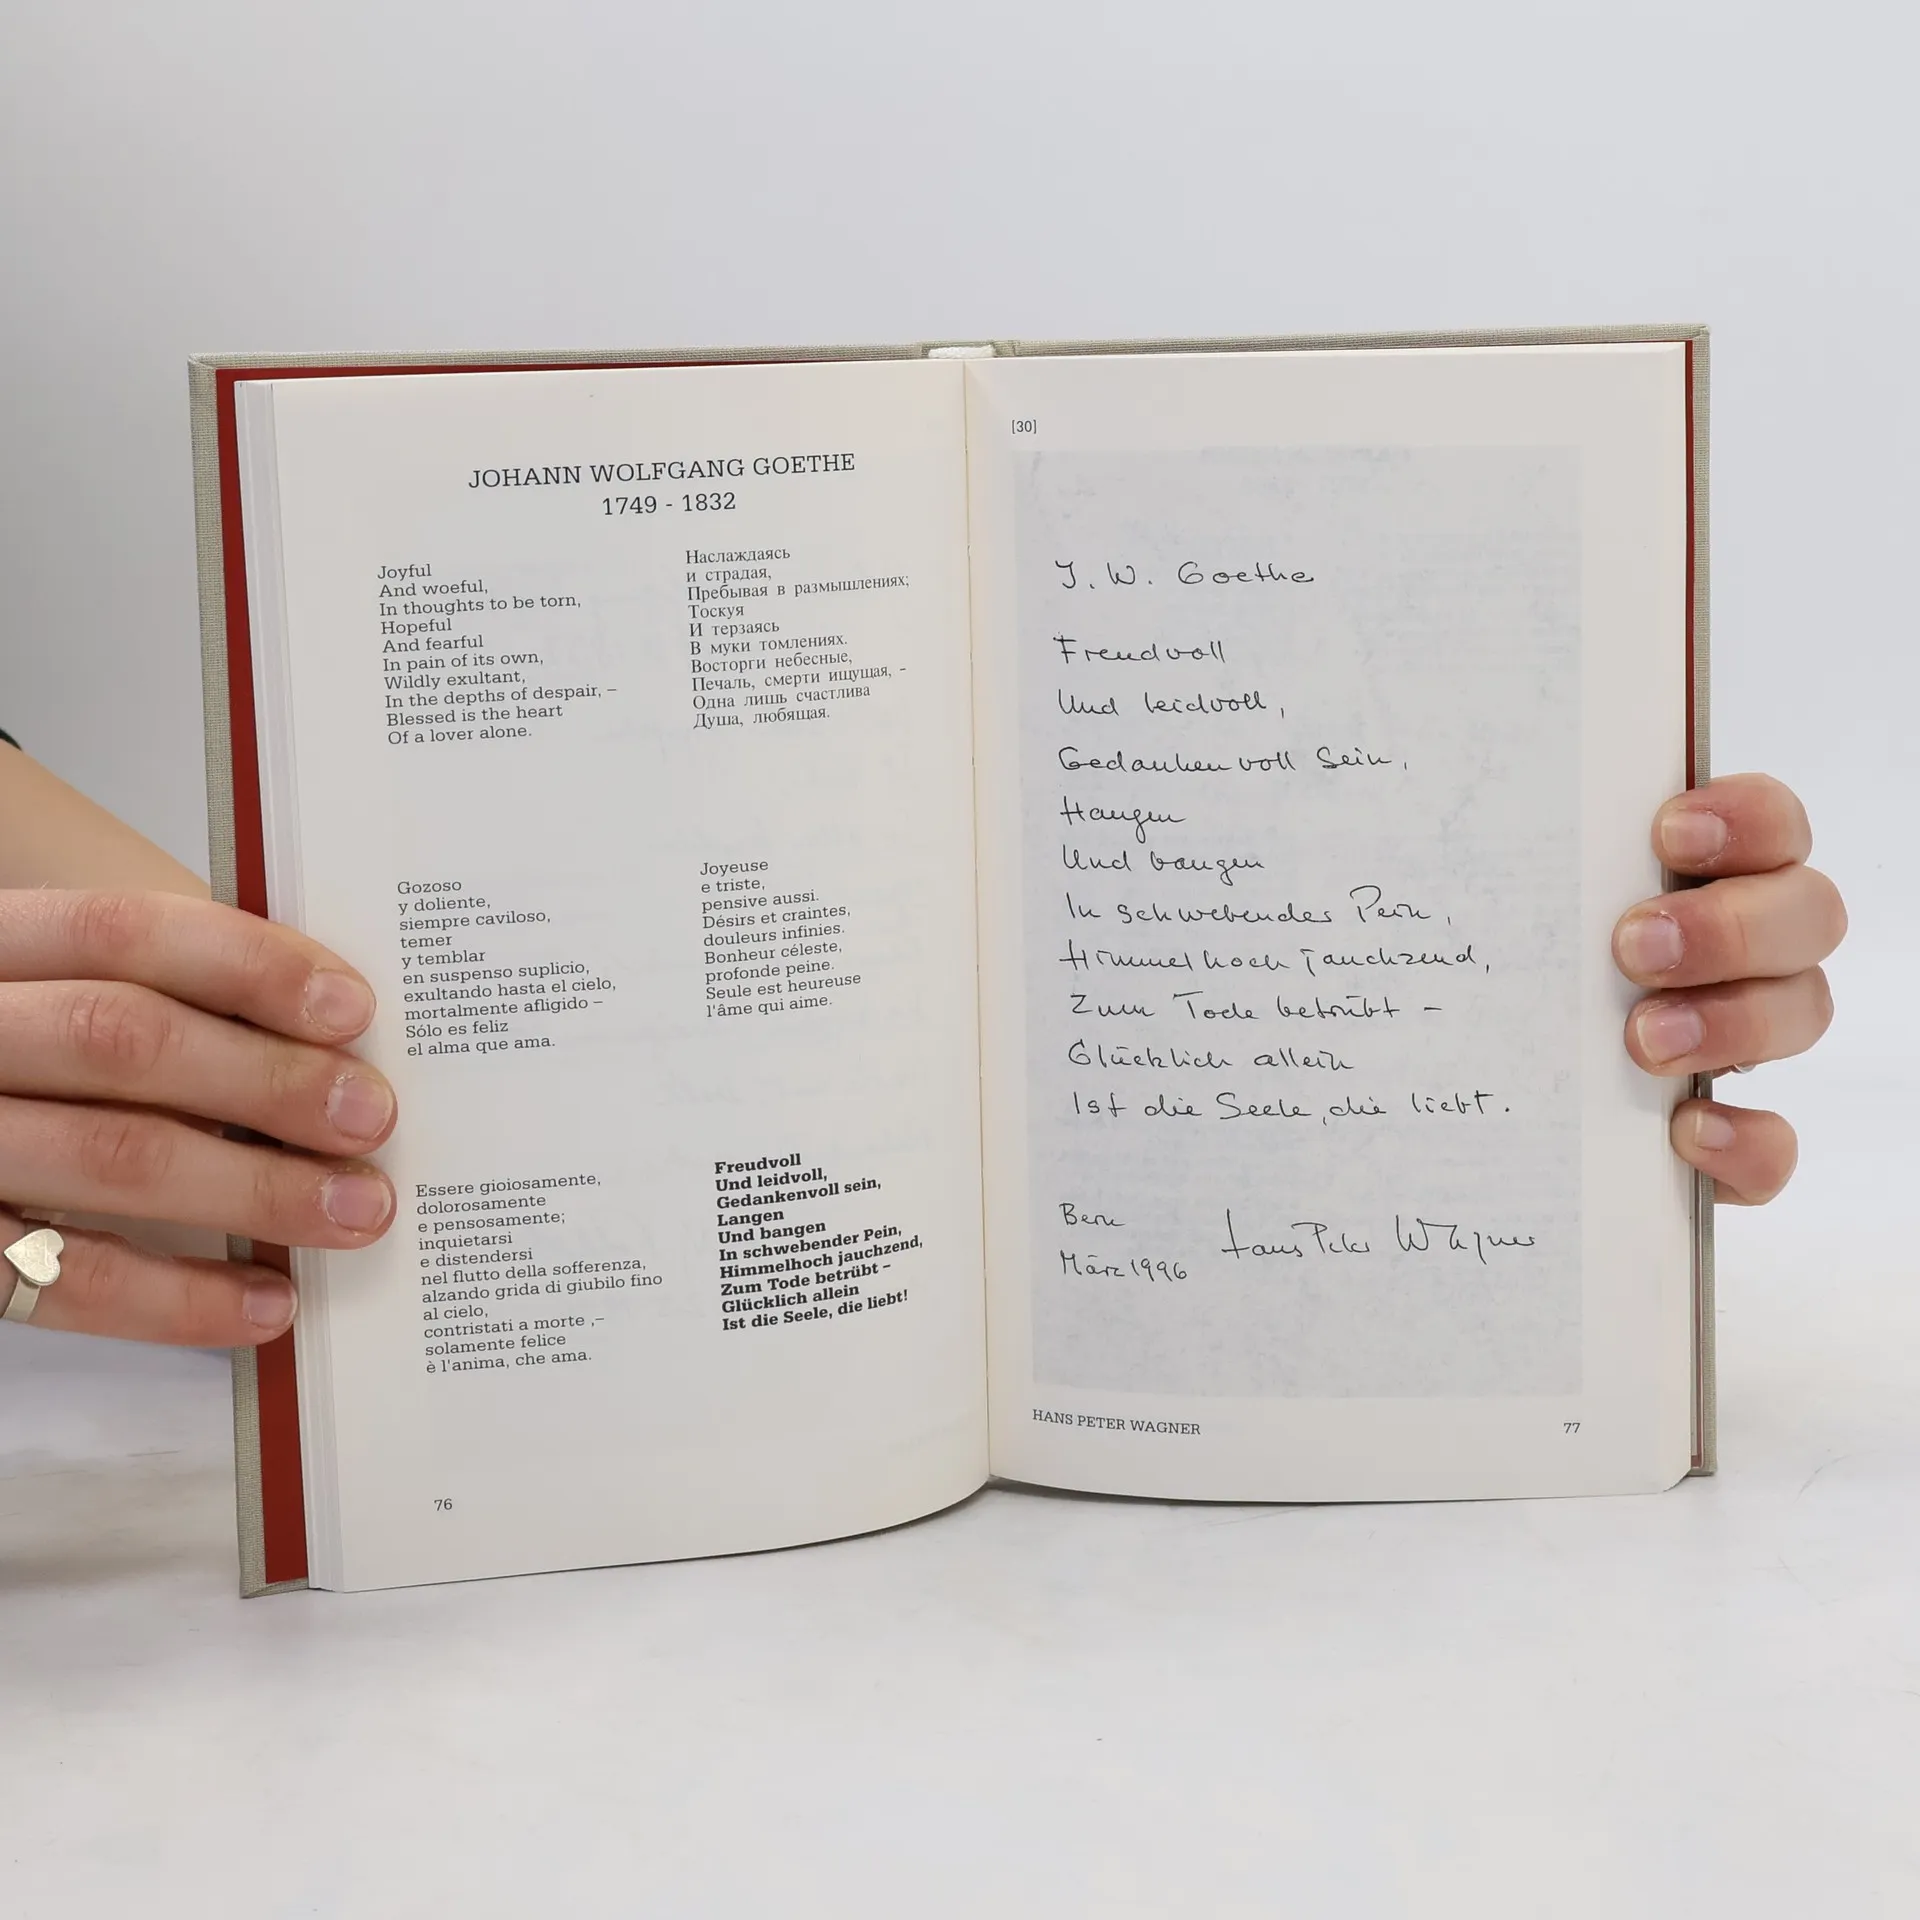 JOHANN WOLFGANG GOETHE
1749 - 1832
Joyful
And woeful,
In thoughts to be torn,
Hopeful
And fearful
In pain of its own,
Wildly exultant,
In the depths of despair, –
Blessed is the heart
Of a lover alone.
Наслаждаясь
и страдая,
Пребывая в размышлениях;
Тоскуя
И терзаясь
В муки томлениях.
Восторги небесные,
Печаль, смерти ищущая, -
Одна лишь счастлива
Душа, любящая.
Gozoso
y doliente,
siempre caviloso,
temer
y temblar
en suspenso suplicio,
exultando hasta el cielo,
mortalmente afligido –
Sólo es feliz
el alma que ama.
Joyeuse
e triste,
pensive aussi.
Désirs et craintes,
douleurs infinies.
Bonheur céleste,
profonde peine.
Seule est heureuse
l'âme qui aime.
Essere gioiosamente,
dolorosamente
e pensosamente;
inquietarsi
e distendersi
nel flutto della sofferenza,
alzando grida di giubilo fino
al cielo,
contristati a morte ,–
solamente felice
è l'anima, che ama.
Freudvoll
Und leidvoll,
Gedankenvoll sein,
Langen
Und bangen
In schwebender Pein,
Himmelhoch jauchzend,
Zum Tode betrübt –
Glücklich allein
Ist die Seele, die liebt!
76
[30]
J. W. Goethe
Freudvoll
Und leidvoll,
Gedankenvoll sein,
Hangen
Und bangen
In schwebender Pein,
Himmelhoch jauchzend,
Zum Tode betrübt –
Glücklich allein
Ist die Seele, die liebt.
Bern
März 1996
Hans Peter Wagner
HANS PETER WAGNER
77